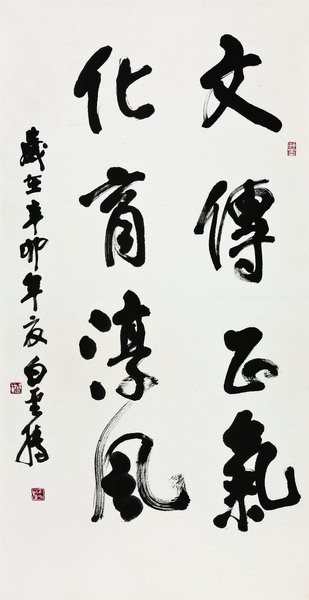 文傳正氣
化育淳風
歲在辛卯年夏白雲騰